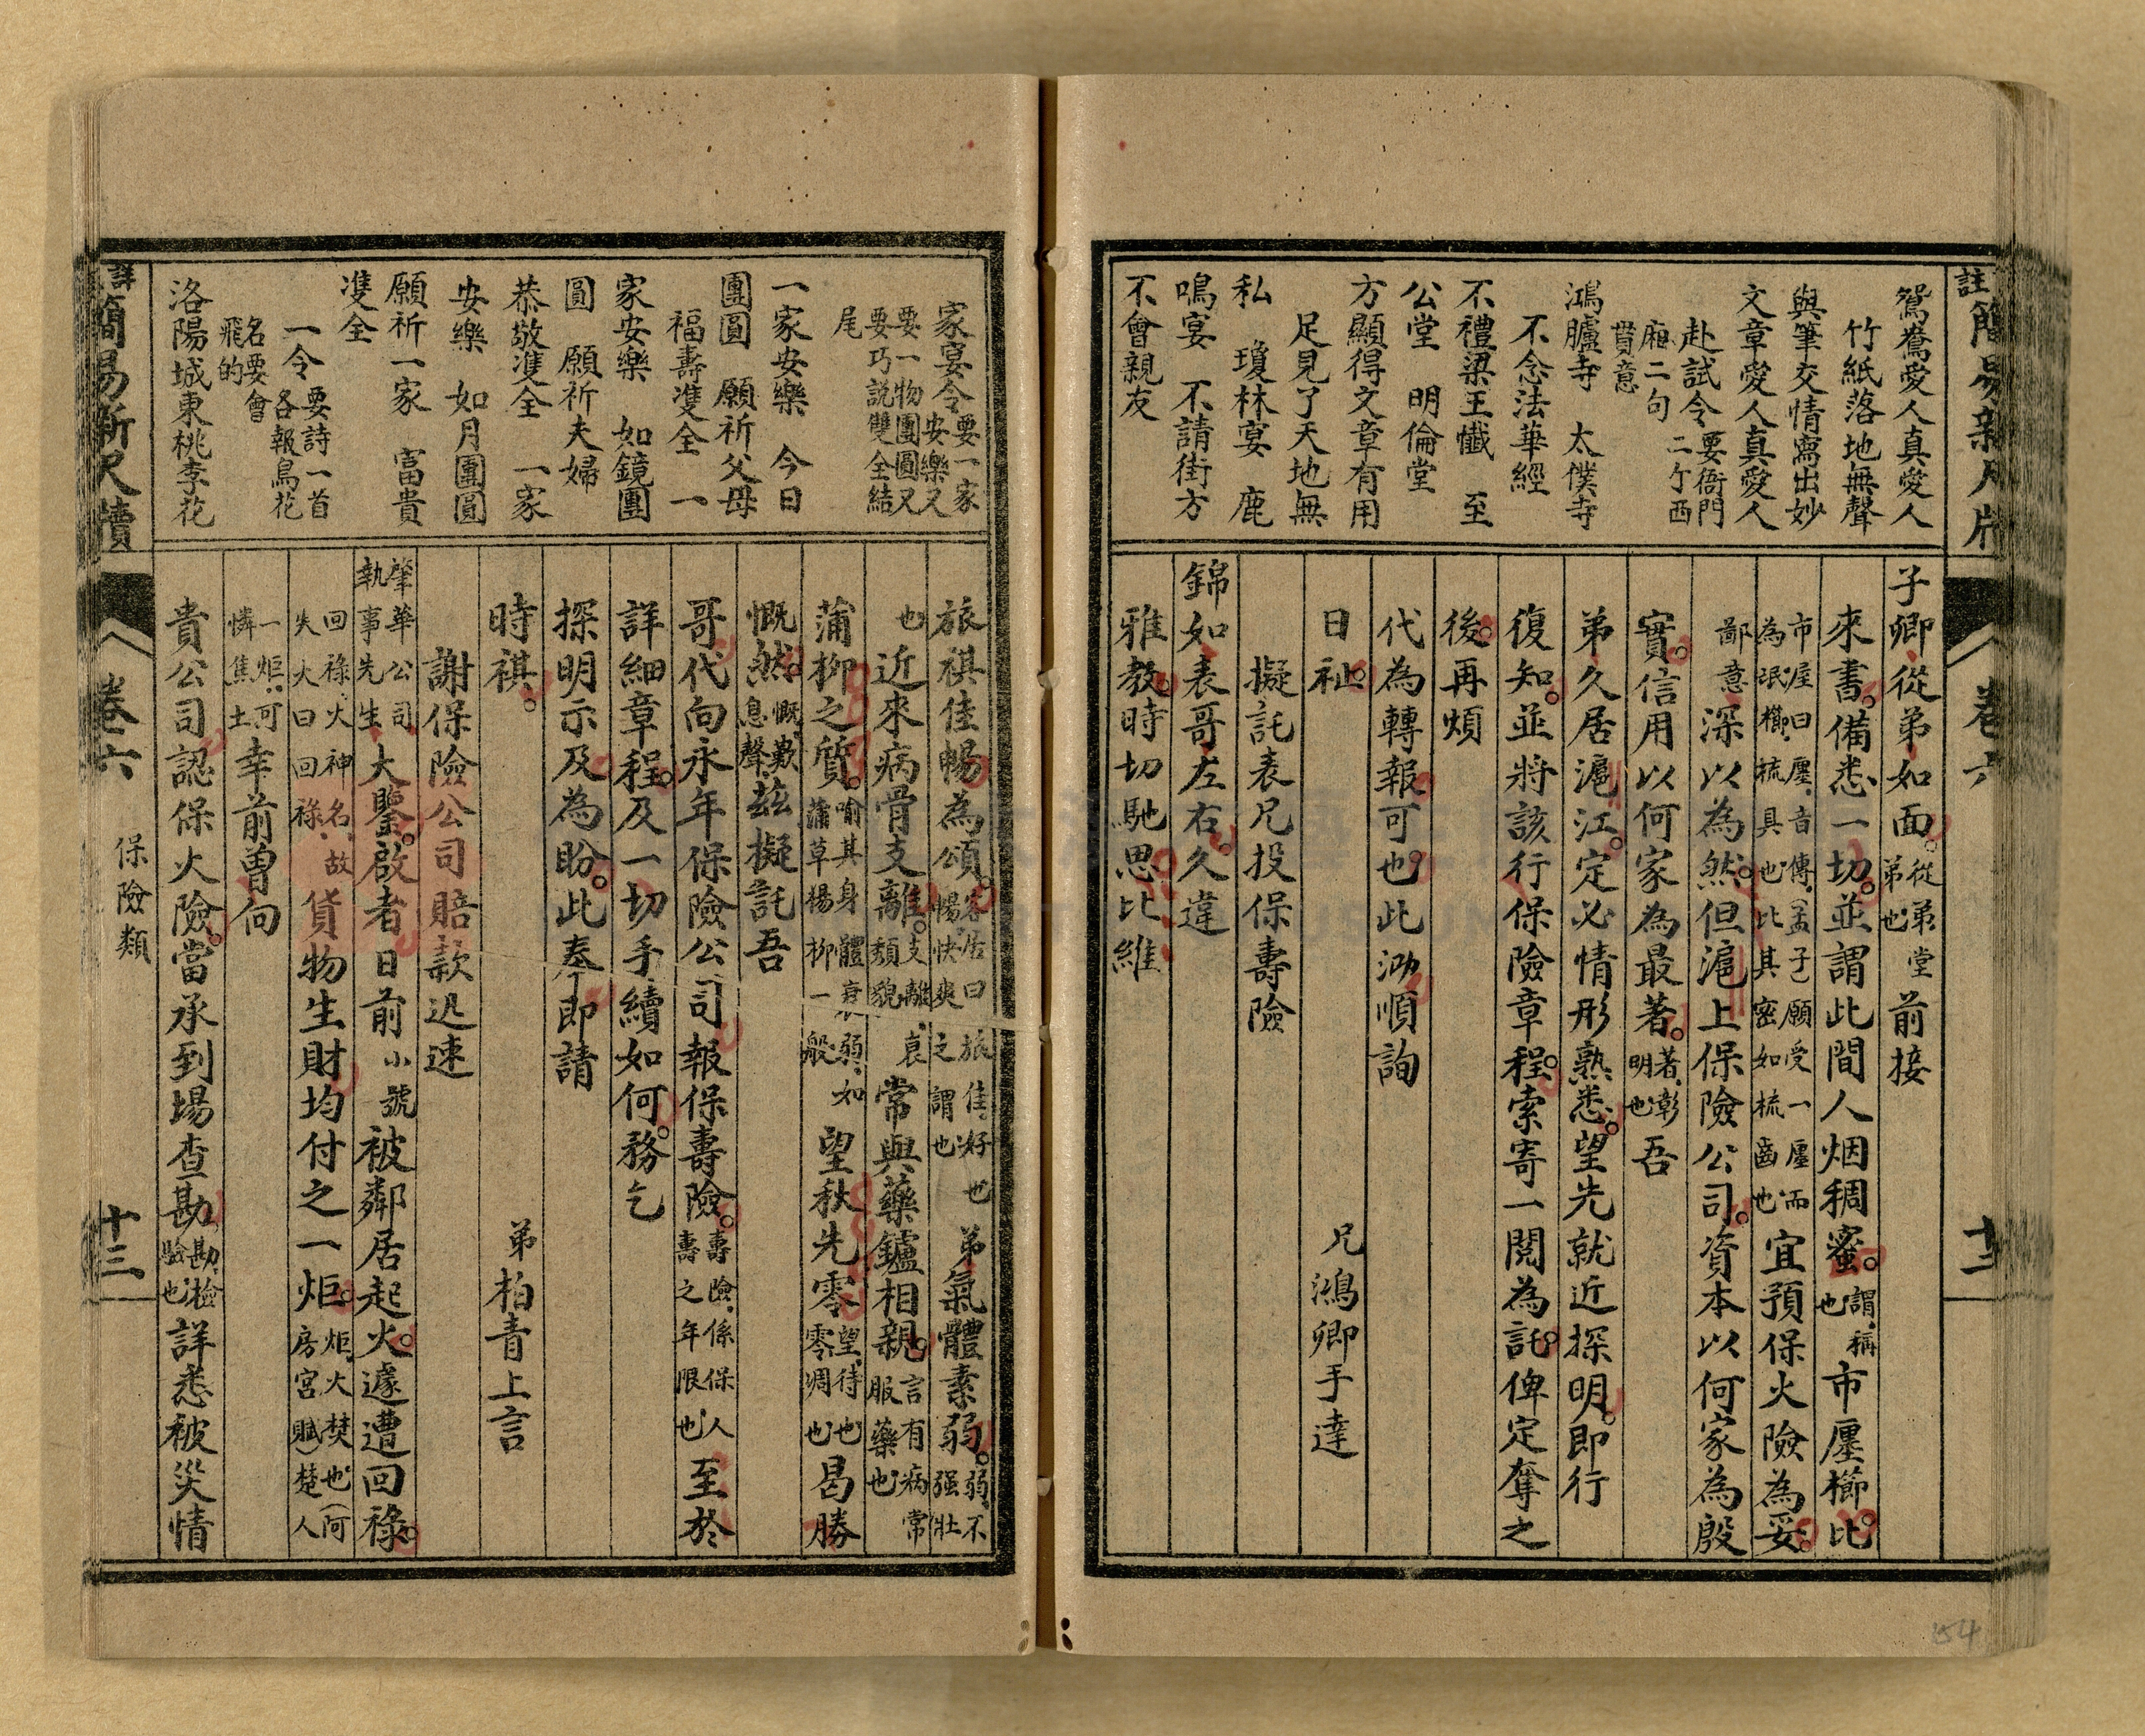 註簡易新尺牘
卷六
十二
鴛鴦愛人真愛人
竹紙落地無聲
與筆交情寫出妙
文章愛人真愛人
赴試令 要衙門二个西
廂二句貫意
鴻臚寺 太僕寺
不念法華經
不禮梁王懺 至
公堂 明倫堂
方顯得文章有用
足見了天地無
私 瓊林宴 鹿
鳴宴 不請街方
不會親友
子卿從弟如面從弟堂弟也前接
來書備悉一切並謂此間人烟稠蜜謂稱也市廛櫛比
市屋曰廛音傳(孟子)願受一廛而為氓櫛梳具也比其密如梳齒也宜預保火險為妥
鄙意深以為然但滬上保險公司資本以何家為殷
實信用以何家為最著著彰明也吾
弟久居滬江定必情形熟悉望先就近探明即行
復知並將該行保險章程索寄一閱為託俾定奪之
後再煩
代為轉報可也此泐順詢
日祉 兄鴻卿手達
擬託表兄投保壽險
錦如表哥左右久違
雅教時切馳思比維
家宴令要一家安樂又
要一物團圓又要巧說雙全結
尾
一家安樂 今日
團圓 願祈父母
福壽雙全 一
家安樂 如鏡團
圓 願祈夫婦
恭敬雙全 一家
安樂 如月團圓
願祈一家 富貴
雙全
一令要詩一首各報鳥花
名要會飛的
洛陽城東桃李花
旅祺佳暢為頌客居曰旅佳好也暢快爽之謂也弟氣體素弱弱不強壯
也近來病骨支離支離衰頹貌常與藥鑪相親言有病常服藥也
蒲柳之質喻其身體衰弱如蒲草楊柳一般望秋先零望待也零凋也曷勝
慨然慨歎息聲茲擬託吾
哥代向永年保險公司報保壽險壽險係保人壽之年限也至於
詳細章程及一切手續如何務乞
探明示及為盼此奉即請
時祺 弟柏青上言
謝保險公司賠款迅速
肇華公司執事先生大鑒啟者日前小號被鄰居起火遽遭回祿
回祿火神名故失火曰回祿貨物生財均付之一炬炬火焚也(阿房宮賦)楚人
一炬可憐焦土幸前曾向
貴公司認保火險當承到場查勘勘檢驗也詳悉被災情
詳簡易新尺牘
卷六
保險類
十三
54